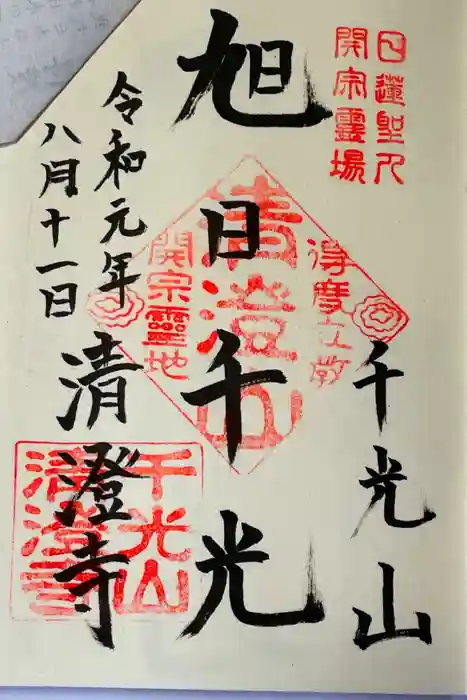 日蓮聖人
開宗靈場
千光山
旭日千光
令和元年
八月十一日
清澄寺
清澄山
得度立教
開宗靈地
千光山
清澄寺